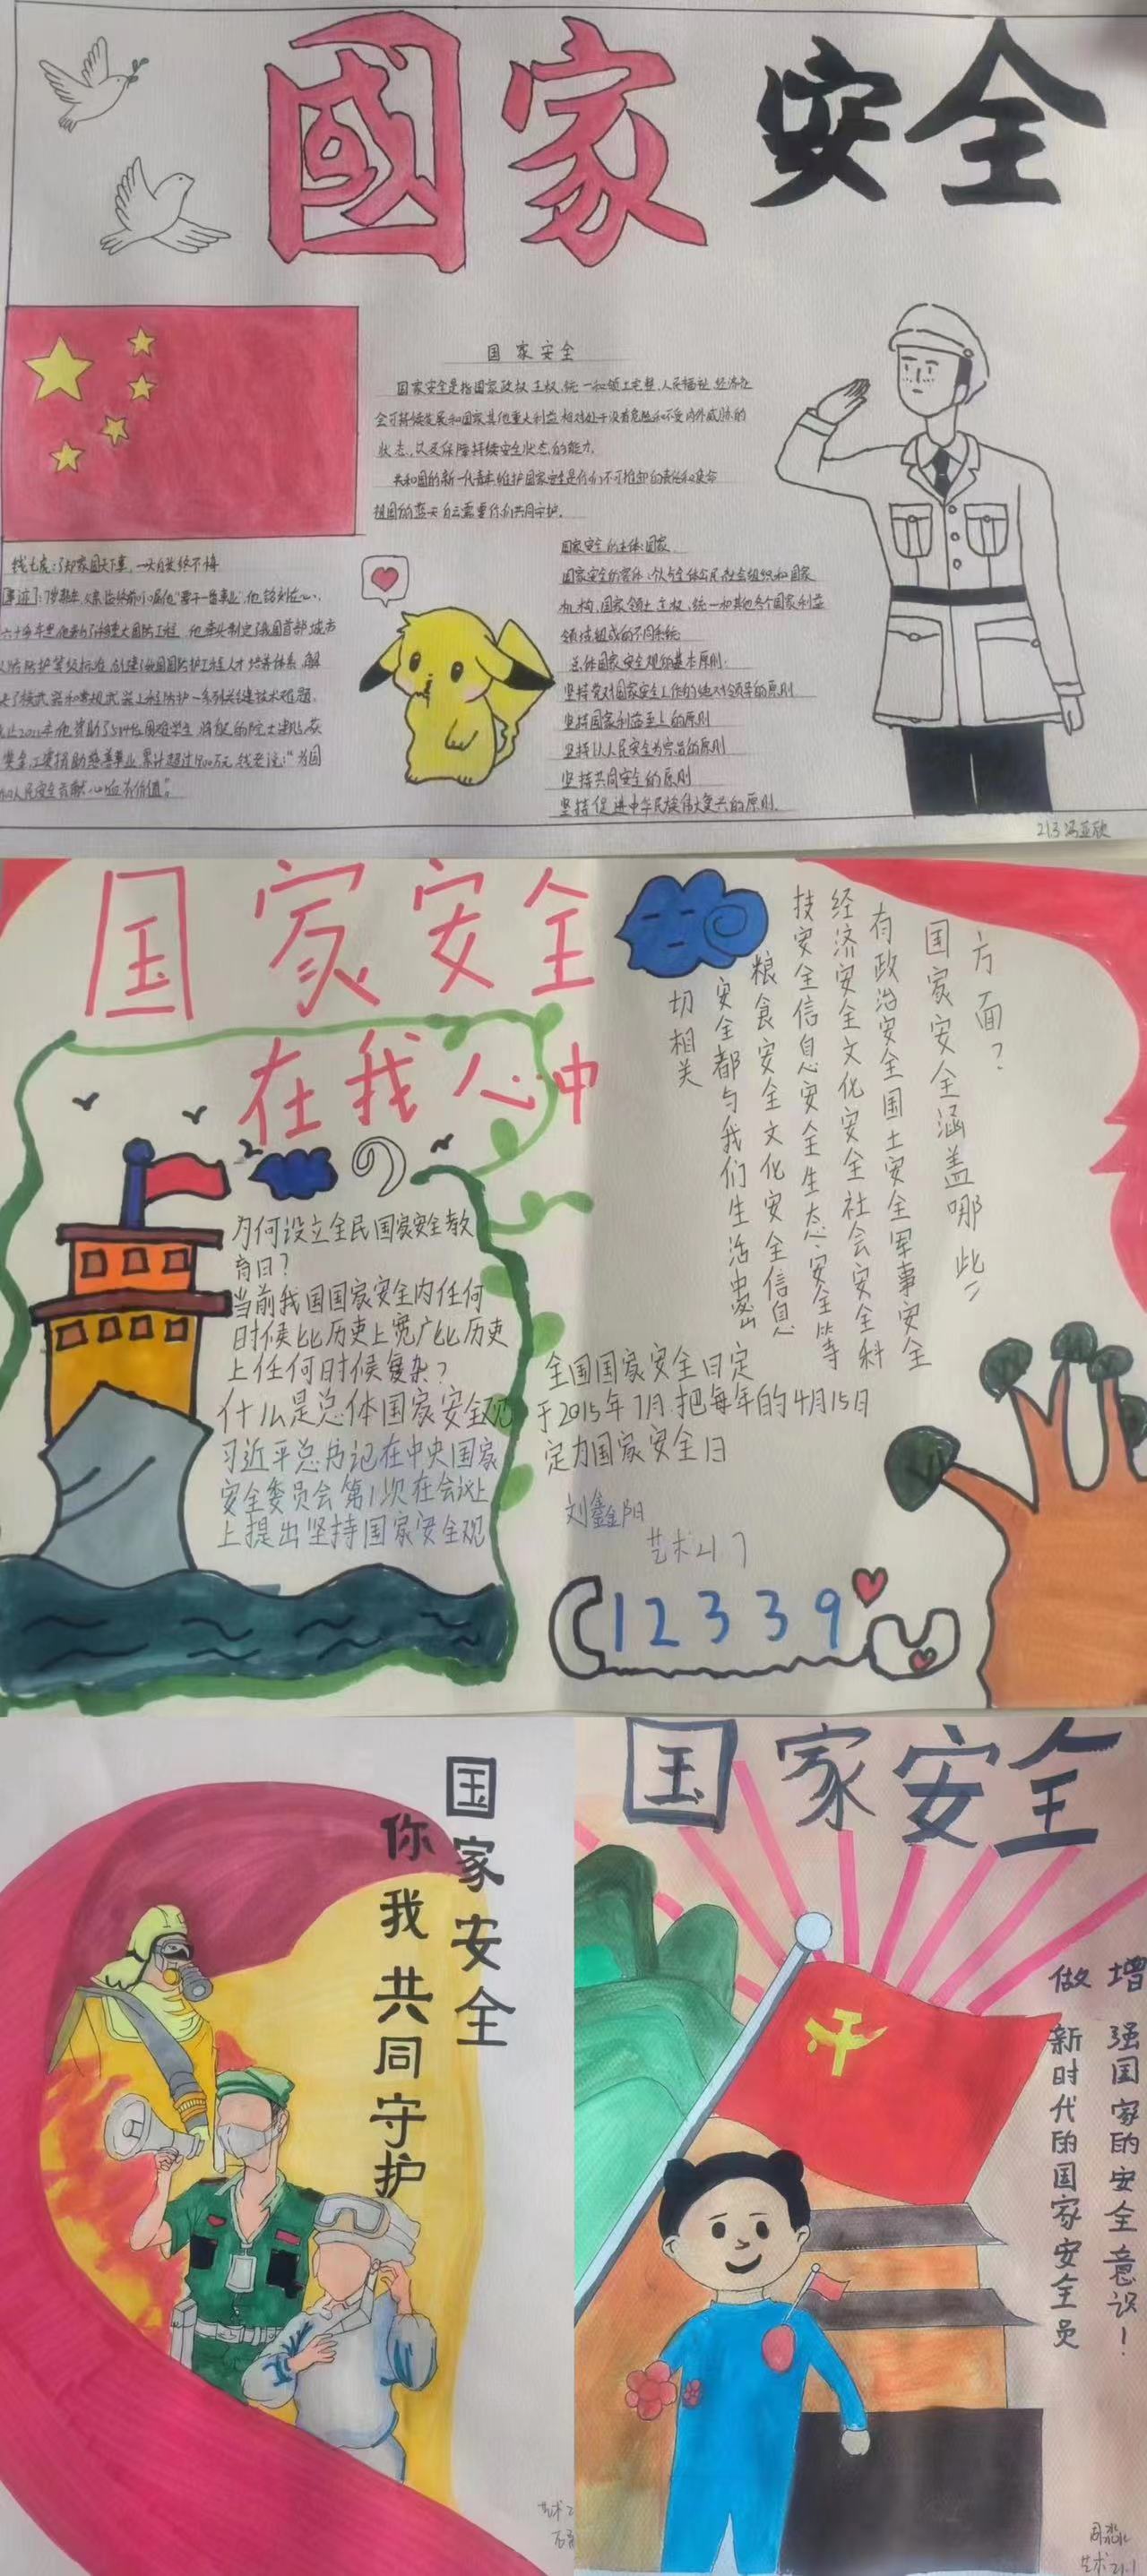 國家安全
国家安全
国家安全是指国家政权、主权、统一和领土完整、人民福祉、经济社
会可持续发展和国家其他重大利益相对处于没有危险和不受内外威胁的
状态,以及保障持续安全状态的能力。
共和国的新一代青年,维护国家安全是你们不可推卸的责任和使命
祖国的蓝天白云需要你们共同守护。
钱七虎:了却家国天下事,一大白发终不悔
国家安全的主体:国家
国家安全的客体:个人与全体公民,社会组织和国家
机构,国家领土主权、统一和其他各个国家利益
领域组成的不同系统
总体国家安全观的基本原则:
坚持党对国家安全工作的绝对领导的原则
坚持国家利益至上的原则
坚持以人民安全为宗旨的原则
坚持共同安全的原则
坚持促进中华民族伟大复兴的原则.
六十多年里他参与了
他牵头制定了我国首部城市
人防防护等级标准,创建了我国防护工程人才培养体系,解
决了核武器和常规武器工程防护一系列关键技术难题.
奖金
捐助慈善事业,累计超过
万元,钱老说:“为国
和人民安全贡献心血有价值”。
213
国家安全
在我心中
为何设立全民国家安全教
育日?
当前我国国家安全内任何
时候比历史上宽广比历史
上任何时候复杂?
什么是总体国家安全观
习近平总书记在中央国家
安全委员会第1次在会议上
上提出坚持国家安全观
方面?
国家安全涵盖哪些
有政治安全国土安全军事安全
经济安全文化安全社会安全科
技安全信息安全生态安全等
粮食安全文化安全信息
安全都与我们生活中密
切相关
全国国家安全日定
于2015年7月,把每年的4月15日
定为国家安全日
刘鑫阳
艺术217
12339
国家安全
你我共同守护
艺术2
国家安全
增强国家的安全意识!
做新时代的国家安全员
艺术21.1